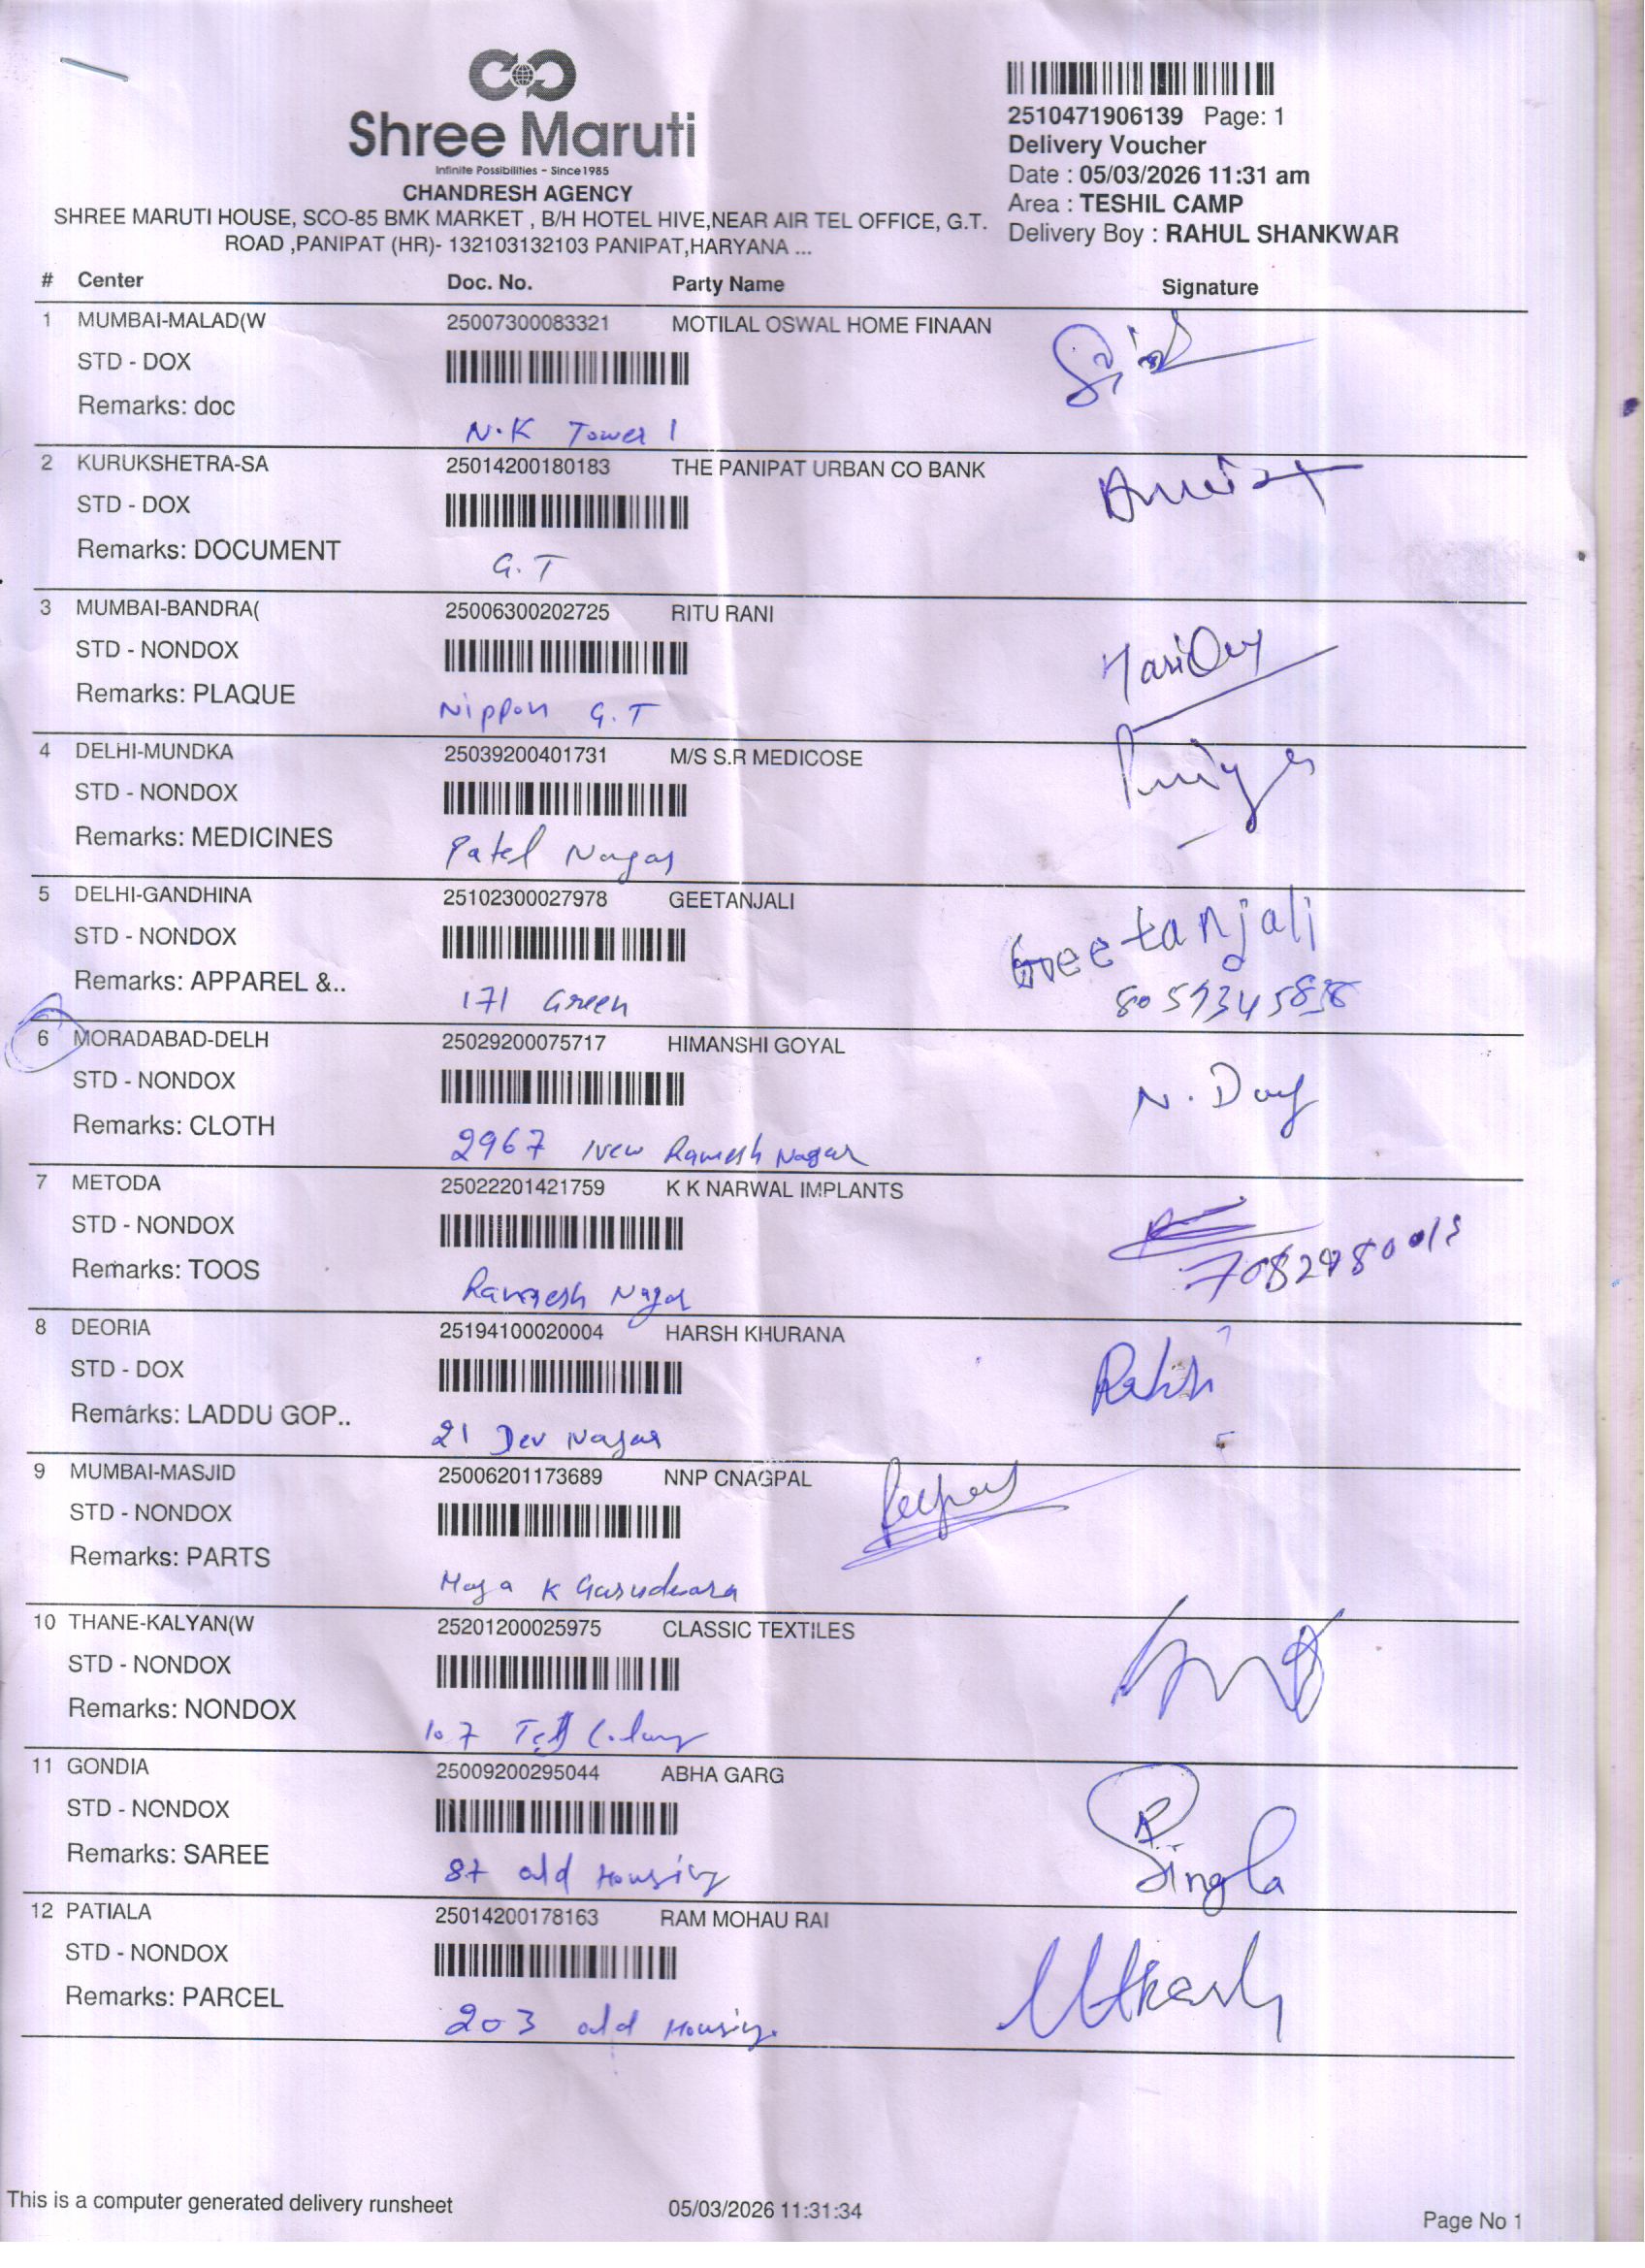 Shree Maruti
Infinite Possibilities - Since1985
CHANDRESH AGENCY
SHREE MARUTI HOUSE, SCO-85 BMK MARKET , B/H HOTEL HIVE,NEAR AIR TEL OFFICE, G.T.
ROAD ,PANIPAT (HR)- 132103132103 PANIPAT,HARYANA ...
2510471906139 Page: 1
Delivery Voucher
Date : 05/03/2026 11:31 am
Area : TESHIL CAMP
Delivery Boy : RAHUL SHANKWAR
# Center Doc. No. Party Name Signature
1 MUMBAI-MALAD(W 25007300083321 MOTILAL OSWAL HOME FINAAN
STD - DOX
Remarks: doc
N.K Tower 1
2 KURUKSHETRA-SA 25014200180183 THE PANIPAT URBAN CO BANK
STD - DOX
Remarks: DOCUMENT
G.T
3 MUMBAI-BANDRA( 25006300202725 RITU RANI
STD - NONDOX
Remarks: PLAQUE
Nippon G.T
4 DELHI-MUNDKA 25039200401731 M/S S.R MEDICOSE
STD - NONDOX
Remarks: MEDICINES
Patel Nagar
5 DELHI-GANDHINA 25102300027978 GEETANJALI
Geetanjali
STD - NONDOX
Remarks: APPAREL &..
171 Green
6 MORADABAD-DELH 25029200075717 HIMANSHI GOYAL
STD - NONDOX
N.
Remarks: CLOTH
2967 New Ramesh Nagar
7 METODA 25022201421759 K K NARWAL IMPLANTS
STD - NONDOX
Remarks: TOOS
Ramesh Nagar
8 DEORIA 25194100020004 HARSH KHURANA
STD - DOX
Remarks: LADDU GOP..
21 Dev Nagar
9 MUMBAI-MASJID 25006201173689 NNP CNAGPAL
STD - NONDOX
Remarks: PARTS
K
10 THANE-KALYAN(W 25201200025975 CLASSIC TEXTILES
STD - NONDOX
Remarks: NONDOX
107
11 GONDIA 25009200295044 ABHA GARG
STD - NONDOX
Remarks: SAREE
Singla
87 old Housing
12 PATIALA 25014200178163 RAM MOHAU RAI
STD - NONDOX
Utkarsh
Remarks: PARCEL
203 old Housing.
This is a computer generated delivery runsheet 05/03/2026 11:31:34 Page No 1